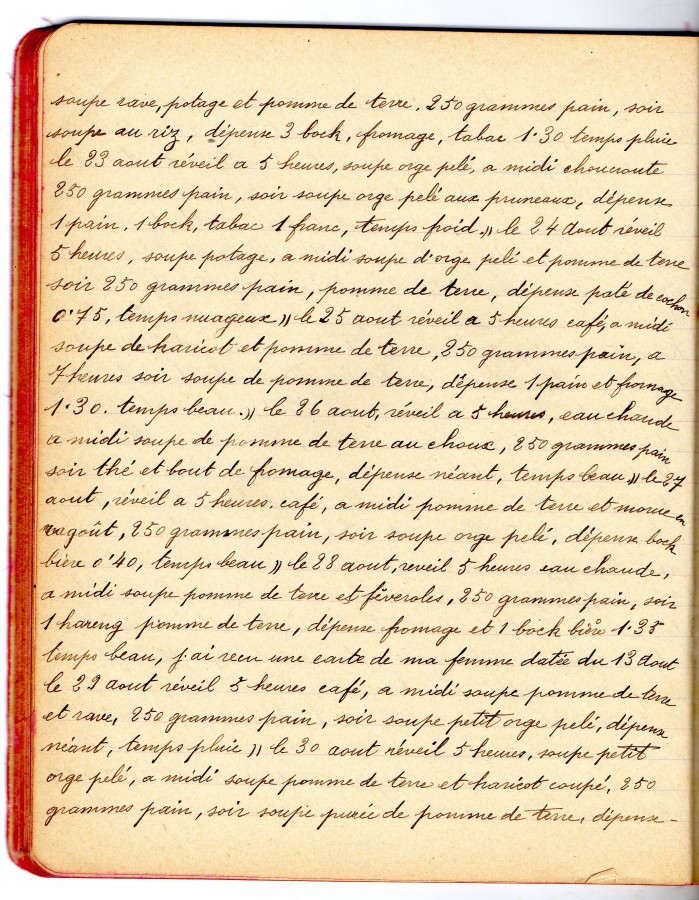 soupe rave, potage et pomme de terre, 250 grammes pain, soir
soupe au riz, dépense 3 bock, fromage, tabac 1.30 temps pluie
le 23 aout réveil a 5 heures, soupe orge pelé, a midi choucroute
250 grammes pain, soir soupe orge pelé aux pruneaux, dépense
1 pain. 1 bock, tabac 1 franc, temps froid.)) le 24 aout réveil
5 heures, soupe potage, a midi soupe d'orge pelé et pomme de terre
soir 250 grammes pain, pomme de terre, dépense paté de cochon
0'75, temps nuageux )) le 25 aout réveil a 5 heures café, a midi
soupe de haricot et pomme de terre, 250 grammes pain, a
7 heures soir soupe de pomme de terre, dépense 1 pain et fromage
1.30. temps beau.)) le 26 aout, réveil a 5 heures, eau chaude
a midi soupe de pomme de terre au choux, 250 grammes pain
soir thé et bout de fromage, dépense néant, temps beau.)) le 27
aout, réveil a 5 heures. café, a midi pomme de terre et morue en
ragoût, 250 grammes pain, soir soupe orge pelé, dépense bock
bière 0'40, temps beau )) le 28 aout, reveil 5 heures eau chaude,
a midi soupe pomme de terre et fêveroles, 250 grammes pain, soir
1 hareng pomme de terre, dépense fromage et 1 bock bière 1.35
temps beau, j'ai recu une carte de ma femme datée du 13 aout
le 29 aout réveil 5 heures café, a midi soupe pomme de terre
et rave, 250 grammes pain, soir soupe petit orge pelé, dépense
néant, temps pluie )) le 30 aout réveil 5 heures, soupe petit
orge pelé, a midi soupe pomme de terre et haricot coupé, 250
grammes pain, soir soupe purée de pomme de terre, dépense -